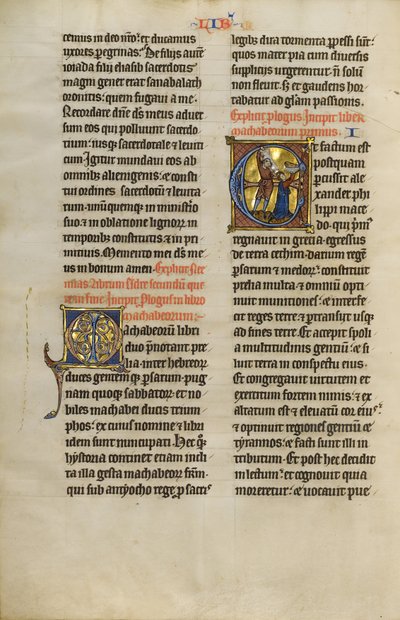 LIB
cemus in deo nr̄o: et ducamus
uxores peregrinas: De filijs autē
ioiada filij eliasib sacerdotis
magni gener erat sanabalach
oronitis: quem fugaui a me.
Recordare dn̄e ds̄ meus aduer
sum eos qui polluunt sacerdo
tium: iusq; sacerdotale et leuiti
cum. Igitur mundaui eos ab
omnibꝫ alienigenis: et consti
tui ordines sacerdotū et leuita
rum: unūquemq; in ministerio
suo: et in oblatione lignoꝝ in
temporibꝫ constitutis: et in pri
mitiuis. Memento mei ds̄ me
us in bonum amen. Explicit Nee
mias. liber esdre secundus que
Incipit ꝓlogus in libro
machabeorum.
Machabeorū libri
duo p̄notant pre
lia: inter hebreoꝝ
duces gentemq; ꝑsarum: pug
nam quoq; sabbatoꝝ: et no
biles machabei ducis trium
phos: ex cuius nomine et libri
idem sunt nuncupati. Hec q̊ꝫ
hystoria continet etiam incli
ta illa gesta machabeoꝝ fr̄m.
qui sub antyocho rege ꝓ sacris
legibꝫ dira tormenta ꝑpessi sūt.
quos mater pia cum diuersis
supplicijs urgerentur: n̄ solū
non fleuit: sꝫ et gaudens hor
tabatur ad gl̄am passionis.
Explicit ꝓlogus. Incipit liber
machabeorum primus. I
Et factum est
postquam
percussit ale
xander phi
lippi mace
do. qui p̄mꝰ
regnauit in grecia: egressus
de terra cethim. darium regē
ꝑsarum et medoꝝ: constituit
prelia multa: et omniū opti
nuit munitiones: et interfe
cit reges terre: et ꝑtransijt usqꝫ
ad fines terre. Et accepit spoli
a multitudinis gentiū: et si
luit terra in conspectu eius.
Et congregauit uirtutem et
exercitum fortem nimis: et ex
altatum est et eleuatū cor eiꝰ:
et optinuit regiones gentiū et
tyrannos: et facti sunt illi in
tributum. Et post hec decidit
in lectum: et cognouit quia
moreretur: et uocauit pue